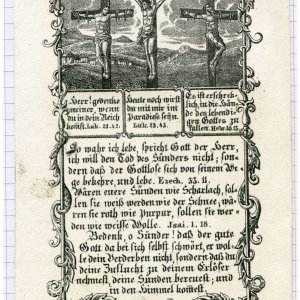 Herr! gedenke
meiner, wenn
du in dein Reich
komst. Luk. 23. 42.
Heute noch wirst
du mit mir im
Paradise seyn.
Luk. 23. 43.
Es ist erschrek-
lich, in die Hän-
de des lebendi-
gen Gottes zu
fallen. Hebr. 10. 13
So wahr ich lebe, spricht Gott der Herr,
ich will den Tod des Sünders nicht; son-
dern daß der Gottlose sich von seinem We-
ge bekehre, und lebe. Ezech. 33. 11.
Wären euere Sünden wie Scharlach, sol-
len sie weiß werden wie der Schnee; wä-
ren sie roth wie Purpur, sollen sie wer-
den wie weisse Wolle. Isai. 1, 18.
Bedenk, o Sünder! daß der gute
Gott da bei sich selbst schwört, er wol-
le dein Verderben nicht, sondern daß du
deine Zuflucht zu deinem Erlöser
nehmest, deine Sünden bereuest, und
in den Himmel komest.